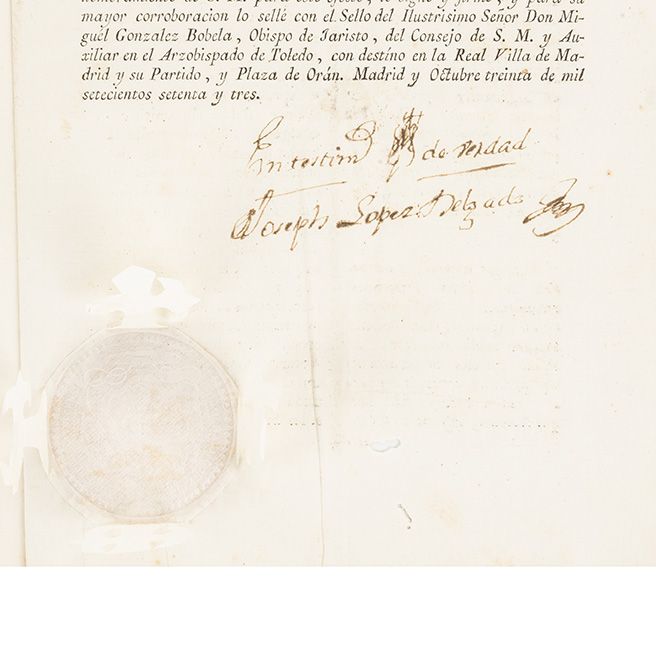 nombramiento de S. M. para este efecto, lo signé y firmé, y para su
mayor corroboracion lo sellé con el Sello del Ilustrisimo Señor Don Mi-
guél Gonzalez Bobela, Obispo de Jaristo, del Consejo de S. M. y Au-
xiliar en el Arzobispado de Toledo, con destíno en la Real Villa de Ma-
drid y su Partido, y Plaza de Orán. Madrid y Octubre treinta de mil
setecientos setenta y tres.
En testimo de verdad
Joseph Lopez Delgado